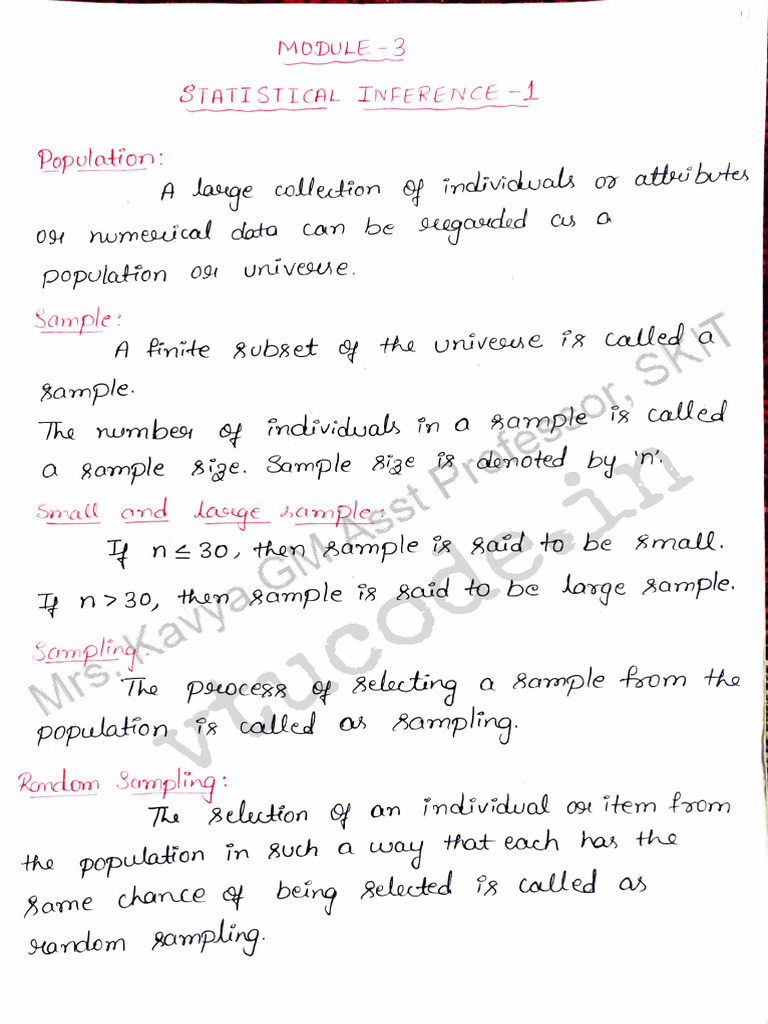 1
MODULE - 3
STATISTICAL INFERENCE - 1
Population:
A large collection of individuals or attributes
or numerical data can be regarded as a
population or universe.
Sample:
A finite subset of the universe is called a
sample.
The number of individuals in a sample is called
a sample size. Sample size is denoted by 'n'.
Small and large sample:
If n ≤ 30, then sample is said to be small.
If n > 30, then sample is said to be large sample.
Sampling:
The process of selecting a sample from the
population is called as sampling.
Random Sampling:
The selection of an individual or item from
the population in such a way that each has the
same chance of being selected is called as
random sampling.
Mrs. Kavya GM Asst Professor, SKIT
vtucode.in